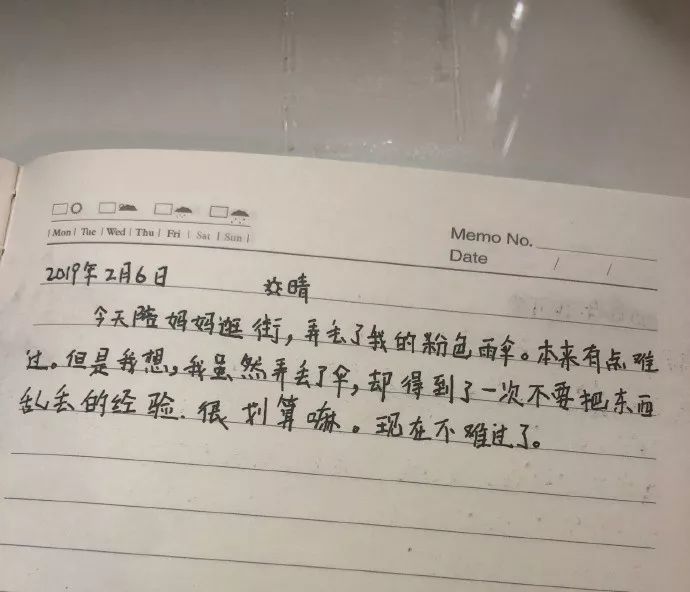 Mon Tue Wed Thu Fri Sat Sun
Memo No.
Date / /
2019年2月6日 晴
今天陪妈妈逛街，弄丢了我的粉色雨伞。本来有点难
过。但是我想，我虽然弄丢了伞，却得到了一次不要把东西
乱丢的经验.很划算嘛。现在不难过了。